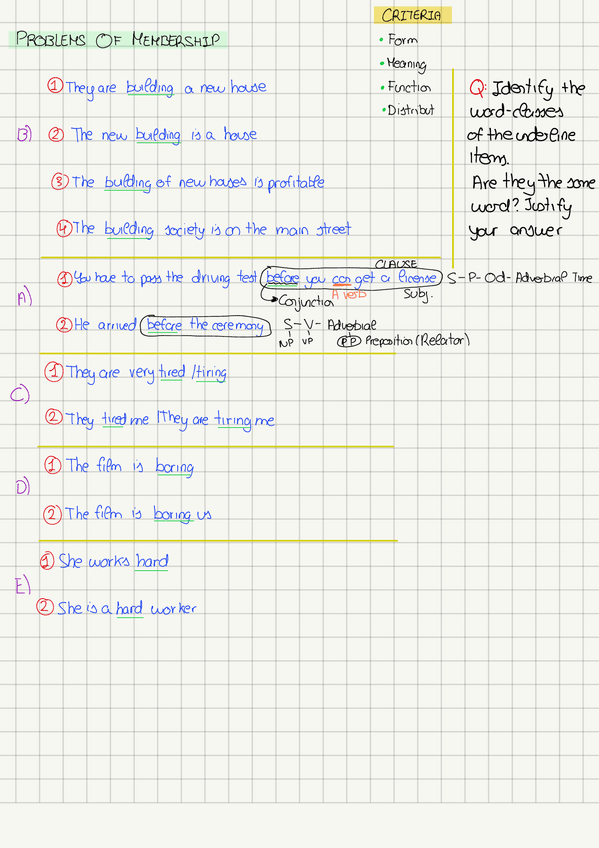 CRITERIA
PROBLEMS OF MEMBERSHIP
• Form
• Meaning
• Function
• Distribut
Q: Identify the
word-classes
of the underline
items.
Are they the same
word? Justify
your answer
B)
1 They are building a new house
2 The new building is a house
3 The building of new houses is profitable
4 The building society is on the main street
A)
CLAUSE
1 You have to pass the driving test before you can get a license S-P-Od-Adverbial Time
Conjunction A verb Subj.
2 He arrived before the ceremony S-V-Adverbial
NP VP PP Preposition (Relator)
C)
1 They are very tired / tiring
2 They tired me / They are tiring me
D)
1 The film is boring
2 The film is boring us
E)
1 She works hard
2 She is a hard worker